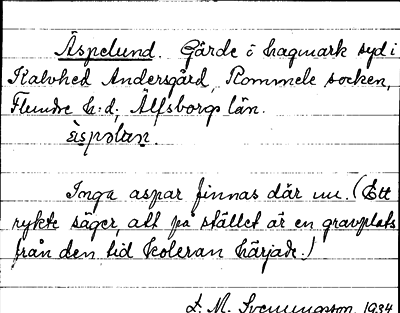 Äspelund. Gärde o hagmark syd i
Kalvhed Andersgård, Rommele socken,
Flundre h:d, Älfsborgs län.
äspəlɯn.
Inga aspar finnas där nu. (Ett
rykte säger, att på stället är en gravplats
från den tid koleran härjade.)
L. M. Svenungsson. 1934